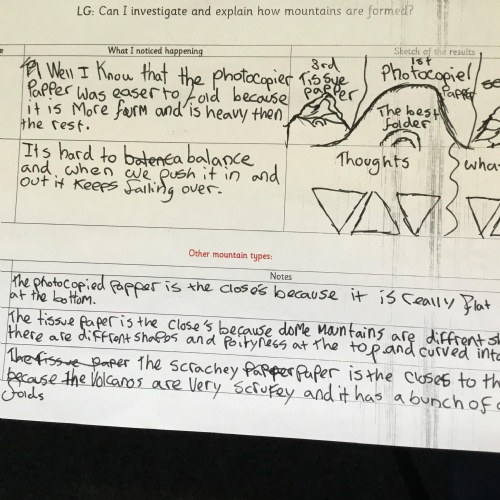 LG: Can I investigate and explain how mountains are formed?
e
What I noticed happening
Sketch of the results
Well I know that the photocopier
Papper was easer to fold because
it is more form and is heavy then
the rest.
3rd
Tissue
papper
1st
Photocopiel
Papper
The best
folder
Its hard to a balance
and when we push it in and
out it keeps falling over.
Thoughts
wha
Other mountain types:
Notes
The photocopied papper is the closes because it is really flat
at the bottom.
The tissue paper is the close's because dome mountains are diffrent sh
there are diffrent shapos and pointyness at the top and curved into
The tissue paper The scrachey papper paper is the closes to th
because the volcanos are very scrufey and it has a bunch of
folds